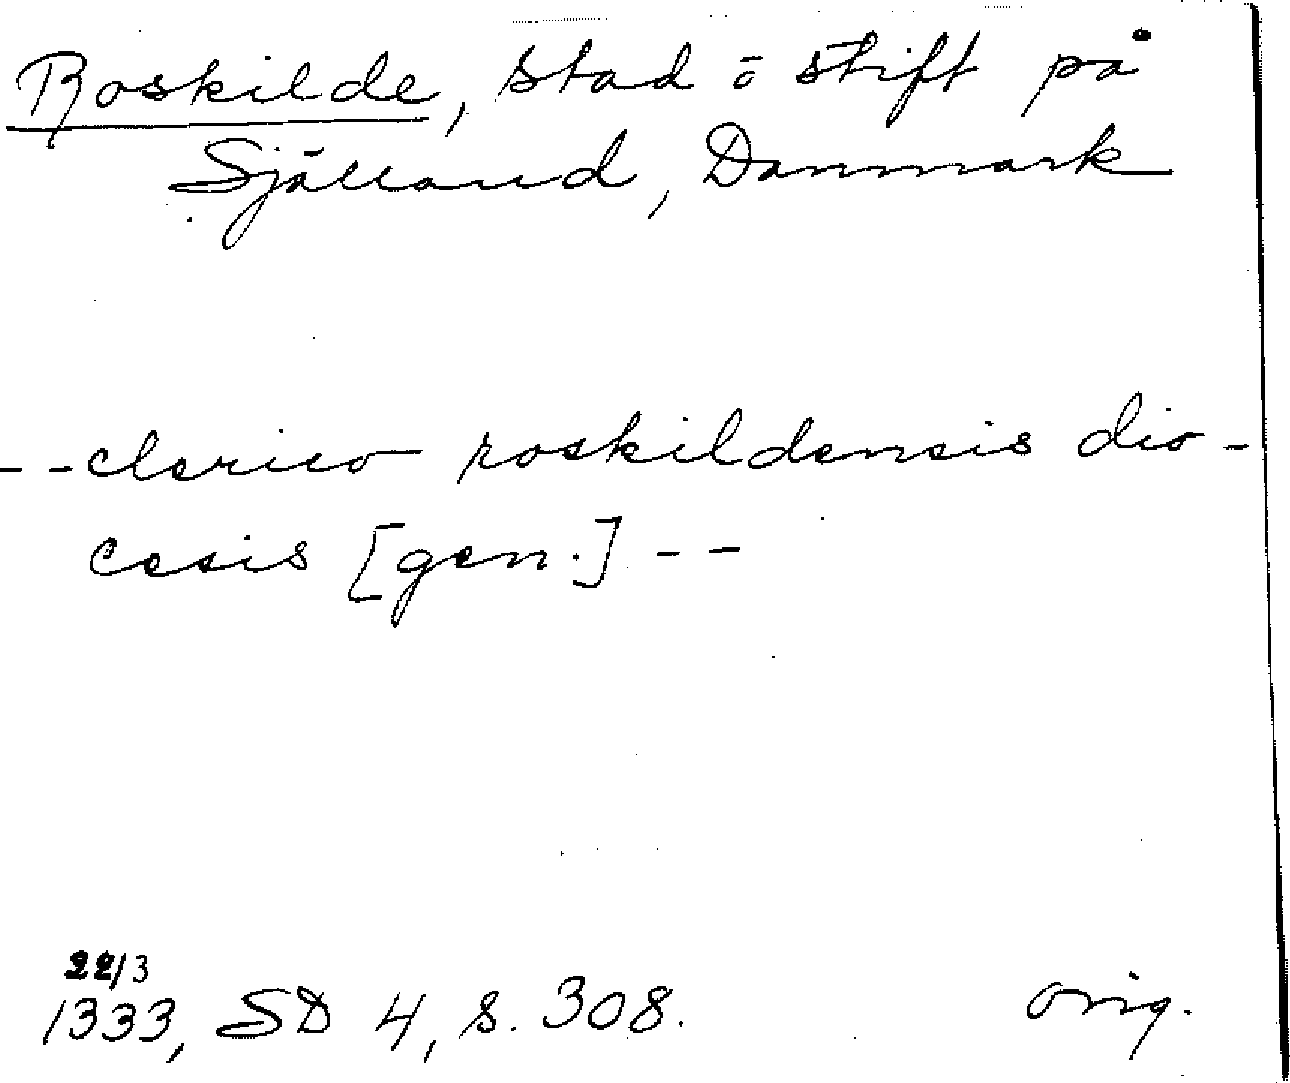 Roskilde, stad o stift på
Själland, Danmark
- - clerico roskildensis dio-
cesis [gen.] - -
22/3
1333, SD 4, s. 308. orig.